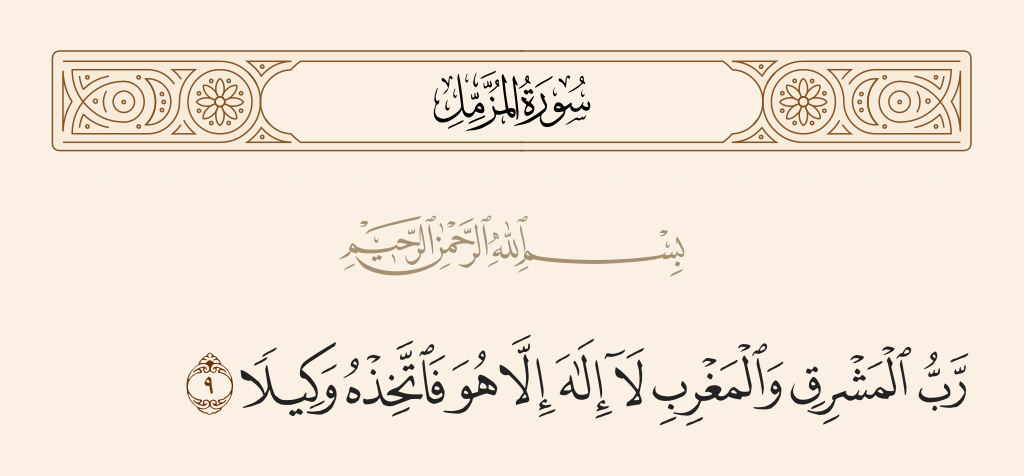 سُورَةُ المُزَّمِّلِ
بِسْمِ ٱللَّهِ ٱلرَّحْمَٰنِ ٱلرَّحِيمِ
رَّبُّ ٱلْمَشْرِقِ وَٱلْمَغْرِبِ لَآ إِلَٰهَ إِلَّا هُوَ فَٱتَّخِذْهُ وَكِيلًا ٩